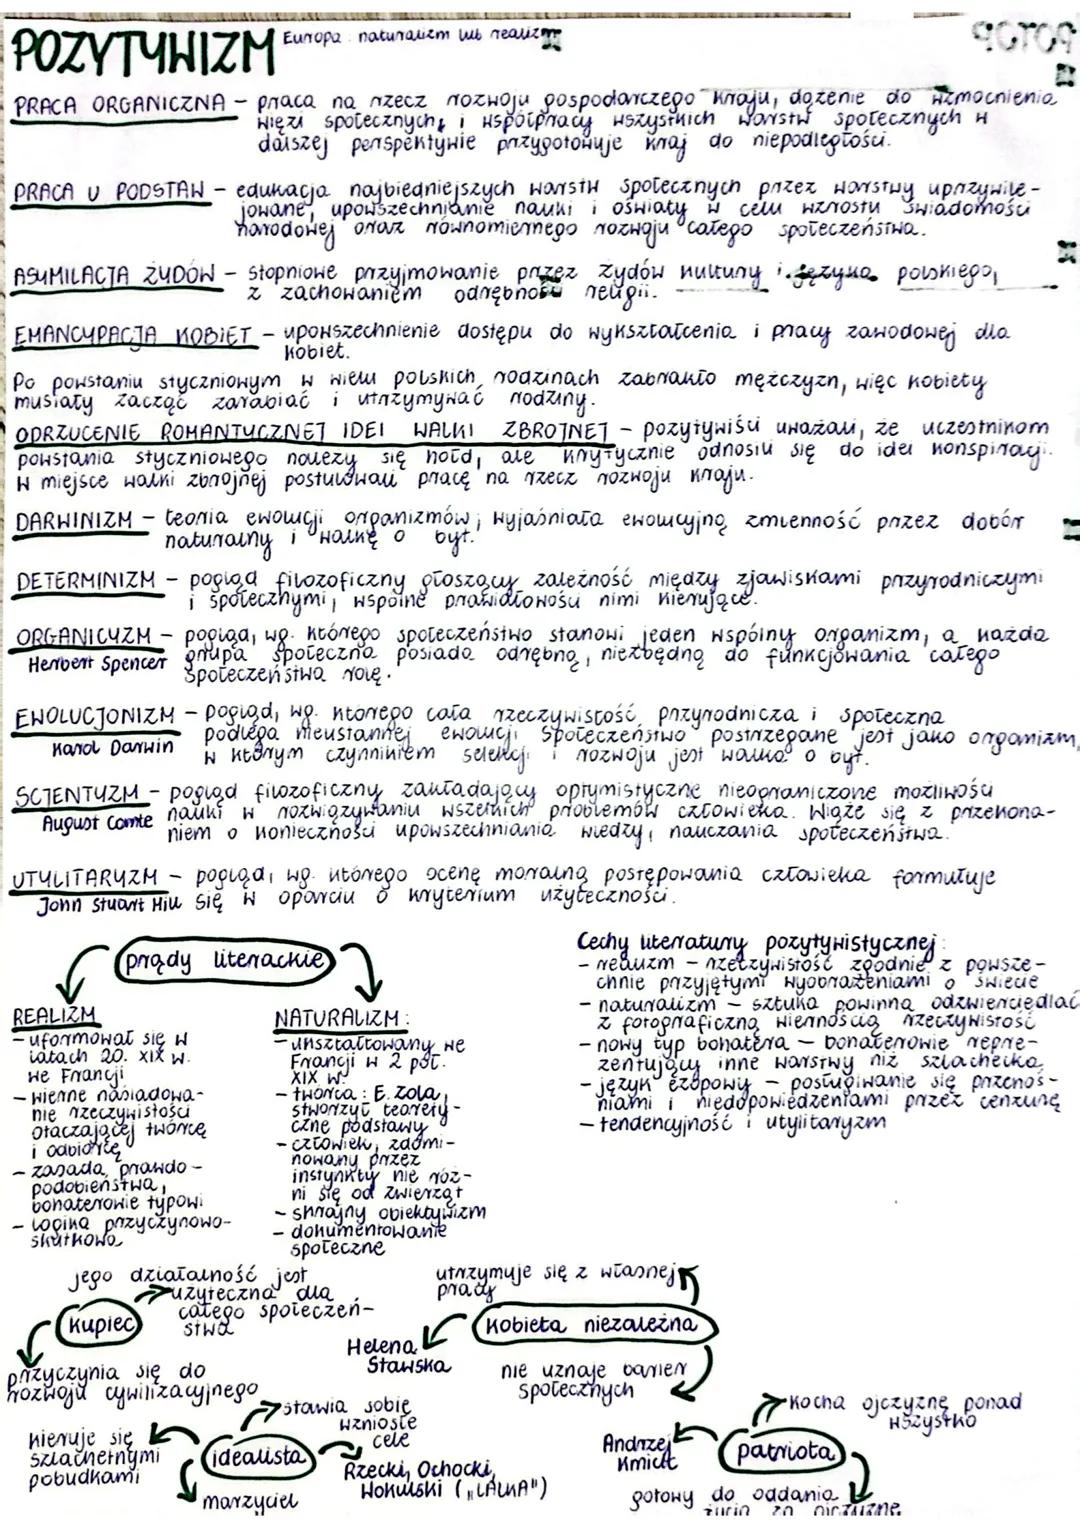 POZYTYWIZM Europa: naturalizm lub realizm
PRACA ORGANICZNA – praca na rzecz rozwoju gospodarczego kraju, dążenie do wzmocnienia
więzi społecznych, i współpracy wszystkich warstw społecznych w
dalszej perspektywie przygotowuje kraj do niepodległości.
PRACA U PODSTAW – edukacja najbiedniejszych warstw społecznych przez warstwy uprzywile-
jowane, upowszechnianie nauki i oświaty w celu wzrostu świadomości
narodowej oraz równomiernego rozwoju całego społeczeństwa.
ASYMILACJA ŻYDÓW – stopniowe przyjmowanie przez Żydów kultury i języka polskiego,
z zachowaniem odrębności religii.
EMANCYPACJA KOBIET – upowszechnienie dostępu do wykształcenia i pracy zawodowej dla
kobiet.
Po powstaniu styczniowym w wielu polskich rodzinach zabrakło mężczyzn, więc kobiety
musiały zacząć zarabiać i utrzymywać rodziny.
ODRZUCENIE ROMANTYCZNEJ IDEI WALKI ZBROJNEJ – pozytywiści uważali, że uczestnikom
powstania styczniowego należy się hołd, ale krytycznie odnosili się do idei konspiracji.
W miejsce walki zbrojnej postulowali pracę na rzecz rozwoju kraju.
DARWINIZM – teoria ewolucji organizmów; wyjaśniała ewolucyjną zmienność przez dobór
naturalny i walkę o byt.
DETERMINIZM – pogląd filozoficzny głoszący zależność między zjawiskami przyrodniczymi
i społecznymi, wspólne prawidłowości nimi kierujące.
ORGANICYZM – pogląd, wg. którego społeczeństwo stanowi jeden wspólny organizm, a każda
Herbert Spencer grupa społeczna posiada odrębną, niezbędną do funkcjowania całego
społeczeństwa rolę.
EWOLUCJONIZM – pogląd, wg. którego cała rzeczywistość przyrodnicza i społeczna
Karol Darwin podlega nieustannej ewolucji. Społeczeństwo postrzegane jest jako organizm,
w którym czynnikiem selekcji i rozwoju jest walka o byt.
SCJENTYZM – pogląd filozoficzny zakładający optymistyczne nieograniczone możliwości
August Comte nauki w rozwiązywaniu wszelkich problemów człowieka. Wiąże się z przekona-
niem o konieczności upowszechniania wiedzy, nauczania społeczeństwa.
UTYLITARYZM – pogląd, wg. którego ocenę moralną postępowania człowieka formułuje
John Stuart Mill się w oparciu o kryterium użyteczności.
prądy literackie
REALIZM
– uformował się w
latach 20. XIX w.
we Francji
– wierne naśladowa-
nie rzeczywistości
otaczającej twórcę
i odbiorcę
– zasada prawdo-
podobieństwa,
bohaterowie typowi
– logika przyczynowo-
skutkowa
NATURALIZM:
– ukształtowany we
Francji w 2 poł.
XIX w.
– twórca: E. Zola,
stworzył teorety-
czne podstawy
– człowiek, zdomi-
nowany przez
instynkty nie róż-
ni się od zwierząt
– skrajny obiektywizm
– dokumentowanie
społeczne
Cechy literatury pozytywistycznej:
– realizm – rzeczywistość zgodnie z powsze-
chnie przyjętymi wyobrażeniami o świecie
– naturalizm – sztuka powinna odzwierciedlać
z fotograficzną wiernością rzeczywistość
– nowy typ bohatera – bohaterowie repre-
zentujący inne warstwy niż szlachecka,
– język ezopowy – posługiwanie się przenoś-
niami i niedopowiedzeniami przez cenzurę
– tendencyjność i utylitaryzm
kupiec
jego działalność jest
użyteczna dla
całego społeczeń-
stwa
przyczynia się do
rozwoju cywilizacyjnego
kobieta niezależna
utrzymuje się z własnej
pracy
Helena
Stawska
nie uznaje barier
społecznych
idealista
stawia sobie
wzniosłe
cele
kieruje się
szlachetnymi
pobudkami
marzyciel
Rzecki, Ochocki,
Wokulski („LALKA")
patriota
kocha ojczyznę ponad
wszystko
Andrzej
Kmicic
gotowy do oddania
życia za ojczyznę